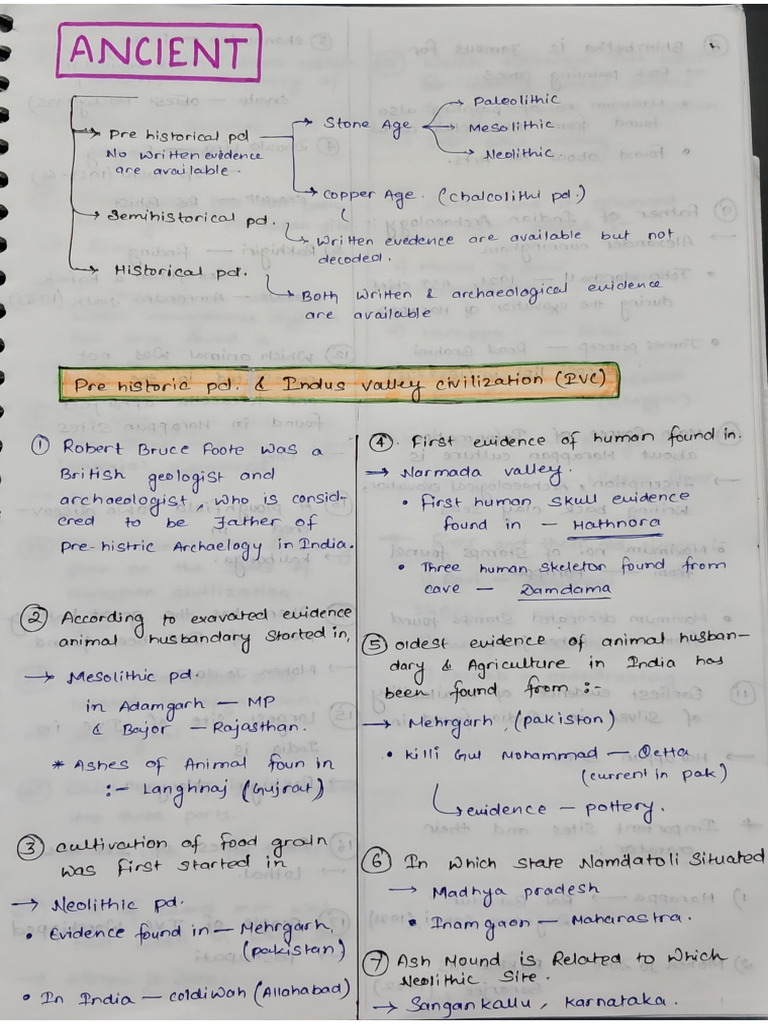 ANCIENT
Pre historical pd
No written evidence
are available.
Stone Age
Paleolithic
Mesolithic
Neolithic
Copper Age. (Chalcolithi pd.)
Semihistorical pd.
Written evedence are available but not
decoded.
Historical pd.
Both written & archaeological evidence
are available
Pre historic pd. & Indus valley civilization (IVC)
① Robert Bruce Foote was a
British geologist and
archaeologist, who is consid-
ered to be Father of
Pre-histric Archaelogy in India.
② According to exavated evidence
animal husbandary started in,
→ Mesolithic pd.
in Adamgarh — MP
& Bajor — Rajasthan.
* Ashes of Animal foun in
:- Langhnaj (Gujrat)
③ cultivation of food grain
was first started in
→ Neolithic pd.
• Evidence found in — Mehrgarh,
(pakistan)
• In India — coldiwah (Allahabad)
④. First evidence of human found in.
→ Narmada valley.
• First human skull evidence
found in — Hathnora
• Three human skeletor found from
cave — Damdama
⑤ oldest evidence of animal husban-
dary & Agriculture in India has
been found from :-
→ Mehrgarh, (pakiston)
• killi Gul Mohammad — Qetta
(current in pak)
evidence — pottery.
⑥ In which state Namdatoli Situated
→ Madhya pradesh
• Inamgaon — Maharastra.
⑦ Ash Mound is Related to which
Neolithic Site.
→ Sangankallu, Karnataka.